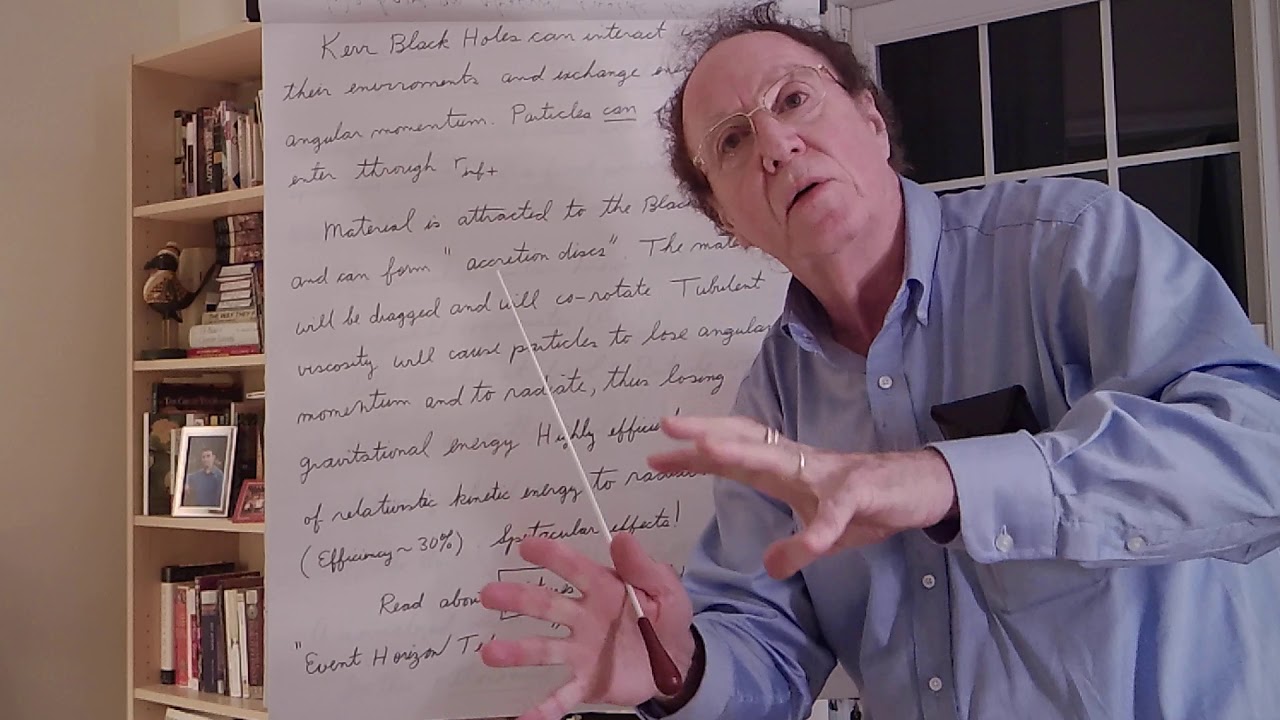 Kerr Black Holes can interact
their enviroments and exchange
angular momentum. Particles can
enter through r inf+
Material is attracted to the Black
and can form "accretion discs". The
will be dragged and will co-rotate Tubulent
viscosity will cause particles to lose angular
momentum and to radiate, thus losing
gravitational energy Highly
of relativistic kinetic energy to
(Efficiency ~ 30%). Spetacular effects!
Read
"Event Horizon